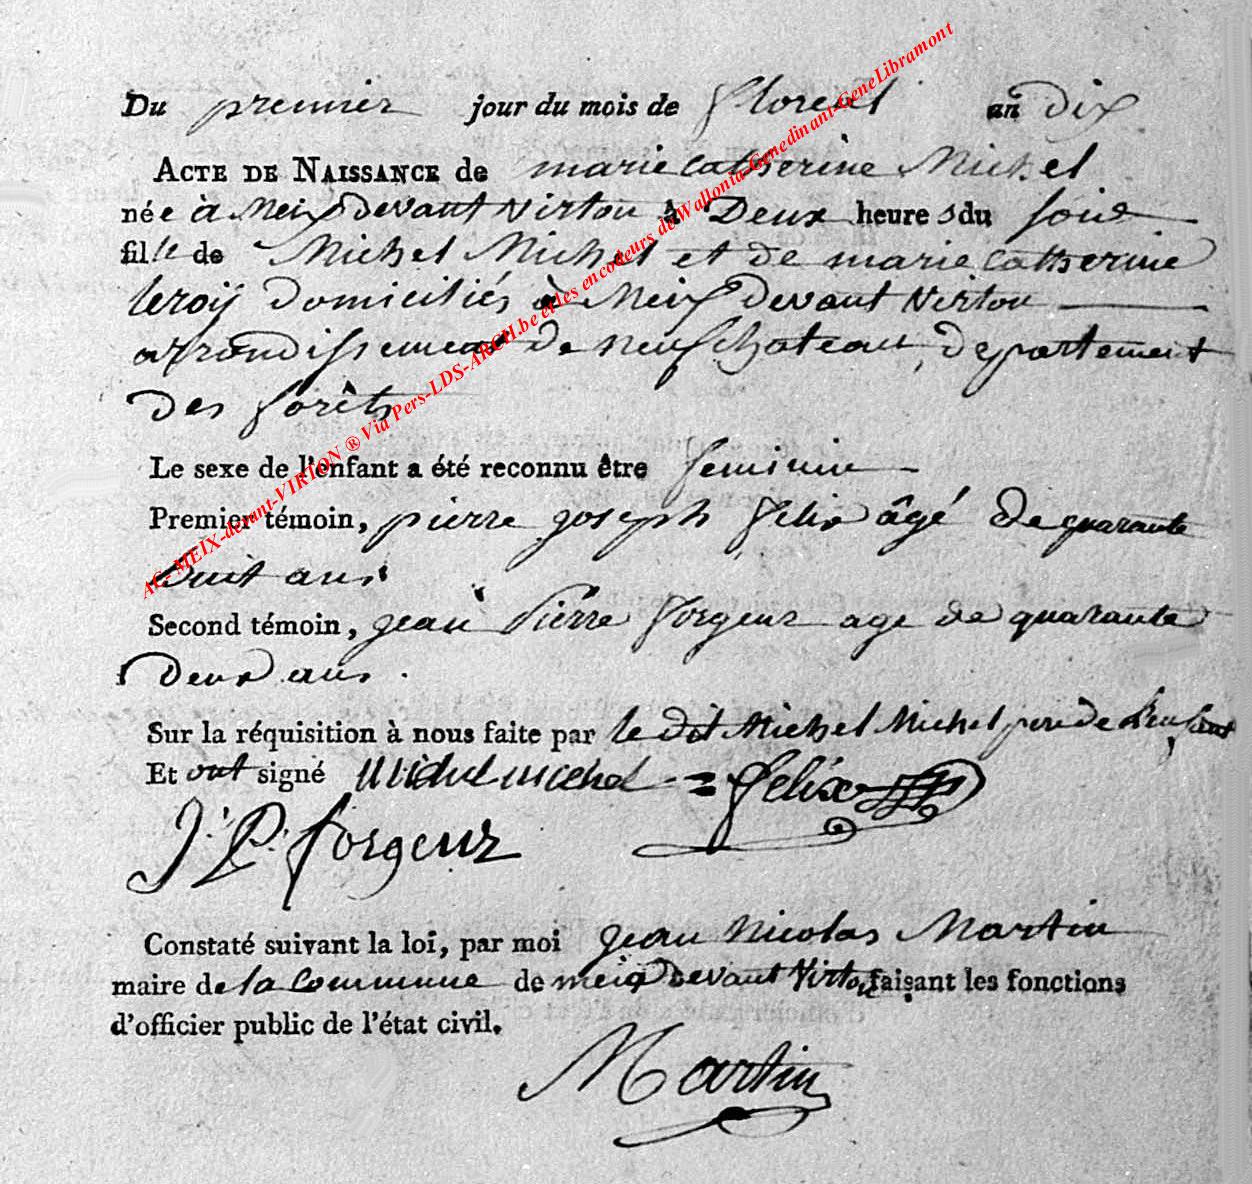 Du premier jour du mois de floreal an dix
ACTE DE NAISSANCE de marie catherine Michel
née à Meix devant Virton à Deux heures du soir
fille de Michel Michel et de marie catherine
leroij domiciliés à Meix devant Virton
arrondissement de neufchateau, departement
des forêts
Le sexe de l'enfant a été reconnu être feminin
Premier témoin, pierre joseph felix âgé de quarante
huit ans
Second témoin, jean Pierre forgeur age de quarante
Deux ans.
Sur la réquisition à nous faite par le dit Michel Michel pere de l'enfant
Et ont signé Michel michel = felix
J: P: forgeur
Constaté suivant la loi, par moi jean Nicolas Martin
maire de la Commune de meix devant Virton faisant les fonctions
d'officier public de l'état civil.
Martin
AC-MEIX-devant-VIRTON ® Via Pers-LDS-ARCH.be et les encodeurs de Wallonia-Genedinant-GeneLibramont